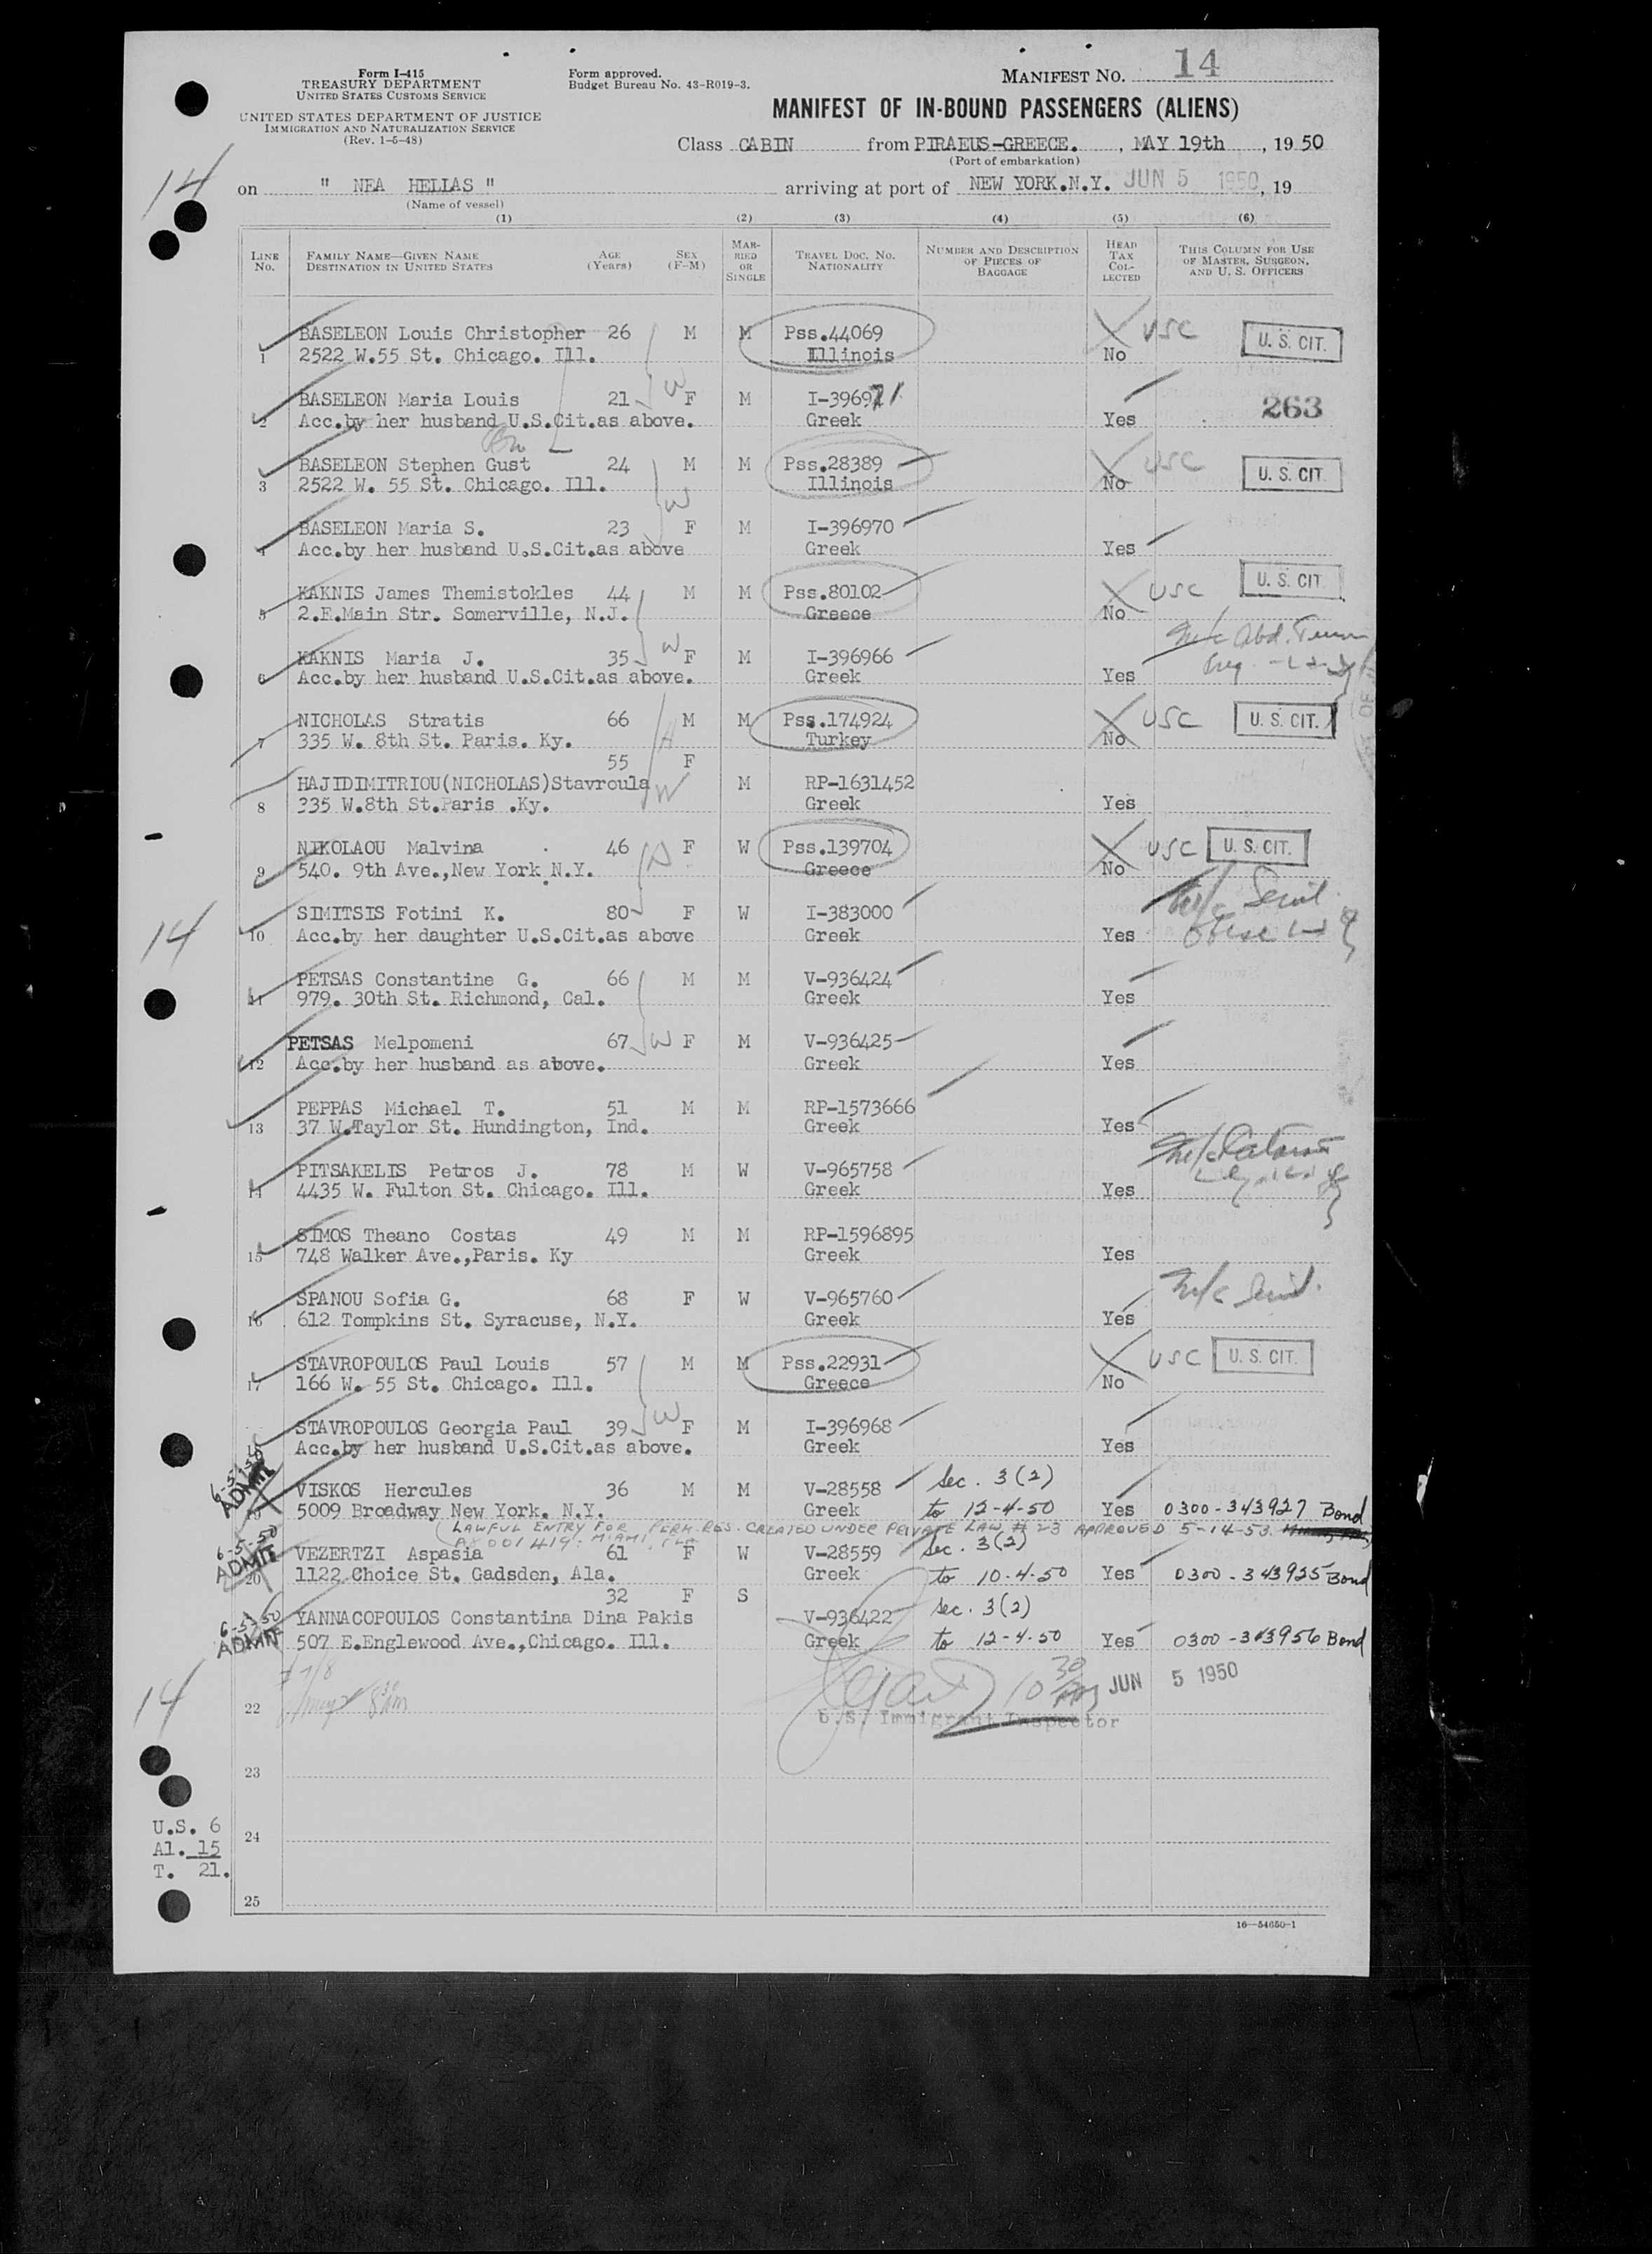 Form I-415
TREASURY DEPARTMENT
UNITED STATES CUSTOMS SERVICE
UNITED STATES DEPARTMENT OF JUSTICE
IMMIGRATION AND NATURALIZATION SERVICE
(Rev. 1-5-48)
Form approved.
Budget Bureau No. 43-R019-3.
MANIFEST NO. 14
MANIFEST OF IN-BOUND PASSENGERS (ALIENS)
Class CABIN from PIRAEUS-GREECE. , MAY 19th , 19 50
(Port of embarkation)
14
on " NEA HELLAS " arriving at port of NEW YORK.N.Y. JUN 5 1950, 19
(Name of vessel)
(1) (2) (3) (4) (5) (6)
LINE No. FAMILY NAME—GIVEN NAME DESTINATION IN UNITED STATES AGE (Years) SEX (F-M) MARRIED OR SINGLE TRAVEL DOC. NO. NATIONALITY NUMBER AND DESCRIPTION OF PIECES OF BAGGAGE HEAD TAX COLLECTED THIS COLUMN FOR USE OF MASTER, SURGEON, AND U. S. OFFICERS
BASELEON Louis Christopher 26 M M Pss.44069 USC U. S. CIT.
1 2522 W.55 St. Chicago. Ill. Illinois No
BASELEON Maria Louis 21 W F M I-396971 263
2 Acc.by her husband U.S.Cit.as above. Greek Yes
BASELEON Stephen Gust 24 M M Pss.28389 USC U. S. CIT.
3 2522 W. 55 St. Chicago. Ill. Illinois No
BASELEON Maria S. 23 W F M I-396970
4 Acc.by her husband U.S.Cit.as above Greek Yes
KAKNIS James Themistokles 44 M M Pss.80102 USC U. S. CIT.
5 2.E.Main Str. Somerville, N.J. Greece No
KAKNIS Maria J. 35 W F M I-396966
6 Acc.by her husband U.S.Cit.as above. Greek Yes
NICHOLAS Stratis 66 M M Pss.174924 USC U. S. CIT.
7 335 W. 8th St. Paris. Ky. H Turkey No
55 F
HAJIDIMITRIOU(NICHOLAS)Stavroula W M RP-1631452
8 335 W.8th St.Paris .Ky. Greek Yes
NIKOLAOU Malvina 46 F W Pss.139704 USC U. S. CIT.
9 540. 9th Ave.,New York N.Y. Greece No
SIMITSIS Fotini K. 80 F W I-383000
10 Acc.by her daughter U.S.Cit.as above Greek Yes
14
PETSAS Constantine G. 66 M M V-936424
11 979. 30th St. Richmond, Cal. Greek Yes
PETSAS Melpomeni 67 W F M V-936425
12 Acc.by her husband as above. Greek Yes
PEPPAS Michael T. 51 M M RP-1573666
13 37 W.Taylor St. Hundington, Ind. Greek Yes
PITSAKELIS Petros J. 78 M W V-965758
14 4435 W. Fulton St. Chicago. Ill. Greek Yes
SIMOS Theano Costas 49 M M RP-1596895
15 748 Walker Ave.,Paris. Ky Greek Yes
SPANOU Sofia G. 68 F W V-965760
16 612 Tompkins St. Syracuse, N.Y. Greek Yes
STAVROPOULOS Paul Louis 57 M M Pss.22931 USC U. S. CIT.
17 166 W. 55 St. Chicago. Ill. Greece No
STAVROPOULOS Georgia Paul 39 W F M I-396968
Acc.by her husband U.S.Cit.as above. Greek Yes
6-5-50 ADMIT
VISKOS Hercules 36 M M V-28558 Sec. 3(2)
19 5009 Broadway New York. N.Y. Greek to 12-4-50 Yes 0300-343927 Bond
LAWFUL ENTRY FOR PERM. RES. CREATED UNDER PRIVATE LAW # 23 APPROVED 5-14-53.
MIAMI, FLA
6-5-50 ADMIT
VEZERTZI Aspasia 61 F W V-28559 Sec. 3(2)
20 1122 Choice St. Gadsden, Ala. Greek to 10-4-50 Yes 0300-343925 Bond
32 F S
6-5-50 ADMIT
YANNACOPOULOS Constantina Dina Pakis V-936422 Sec. 3(2)
507 E.Englewood Ave.,Chicago. Ill. Greek to 12-4-50 Yes 0300-343956 Bond
JUN 5 1950
14
22
U.S. Immigrant Inspector
23
U.S. 6
24
Al. 15
T. 21.
25
16—54650-1